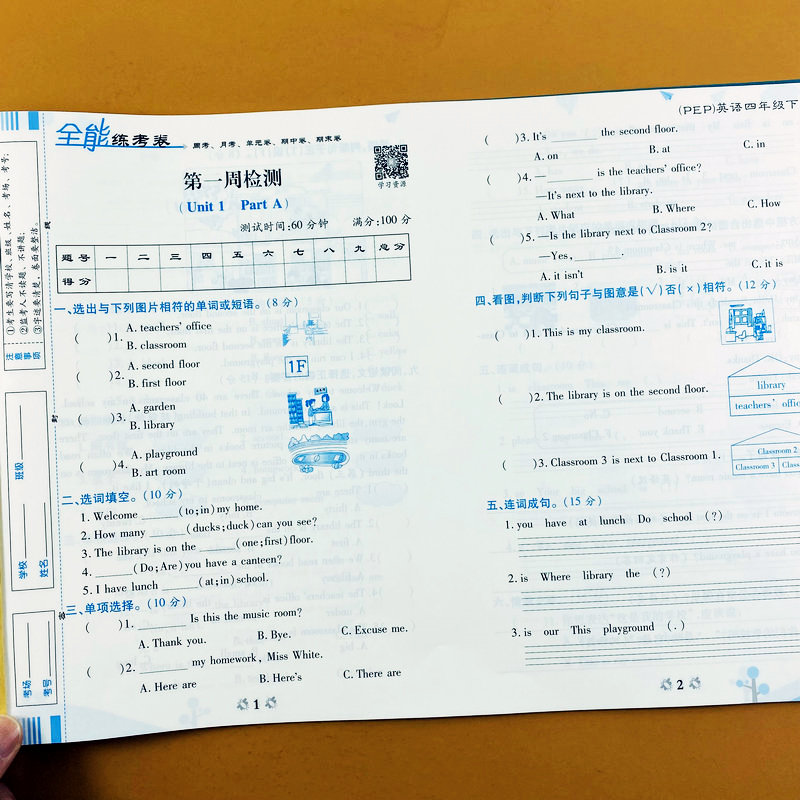 (PEP)英语四年级下
全能练考卷
周考、月考、单元卷、期中卷、期末卷
学习资源
第一周检测
(Unit 1 Part A)
测试时间:60分钟 满分:100分
题号 一 二 三 四 五 六 七 八 九 总分
得分
一、选出与下列图片相符的单词或短语。(8分)
( )1. A. teachers' office
B. classroom
( )2. A. second floor
B. first floor
1F
( )3. A. garden
B. library
( )4. A. playground
B. art room
二、选词填空。(10分)
1. Welcome ______(to;in) my home.
2. How many ______(ducks;duck) can you see?
3. The library is on the ______(one;first) floor.
4. ______(Do;Are) you have a canteen?
5. I have lunch ______(at;in) school.
三、单项选择。(10分)
( )1. ________ Is this the music room?
A. Thank you. B. Bye. C. Excuse me.
( )2. ________ my homework, Miss White.
A. Here are B. Here's C. There are
1
( )3. It's ________ the second floor.
A. on B. at C. in
( )4. — ________ is the teachers' office?
—It's next to the library.
A. What B. Where C. How
( )5. —Is the library next to Classroom 2?
—Yes, ________.
A. it isn't B. is it C. it is
四、看图,判断下列句子与图意是(√)否(×)相符。(12分)
( )1. This is my classroom.
( )2. The library is on the second floor.
library
teachers' offic
( )3. Classroom 3 is next to Classroom 1.
Classroom 2
Classroom 3 Class
五、连词成句。(15分)
1. you have at lunch Do school (?)
2. is Where library the (?)
3. is our This playground (.)
2
注意事项
①考生要写清学校、班级、姓名、考场、考号;
②监考人不读题、不讲题;
③字迹要清楚,卷面要整洁。
学校
班级
姓名
考场
考号
线
封
密